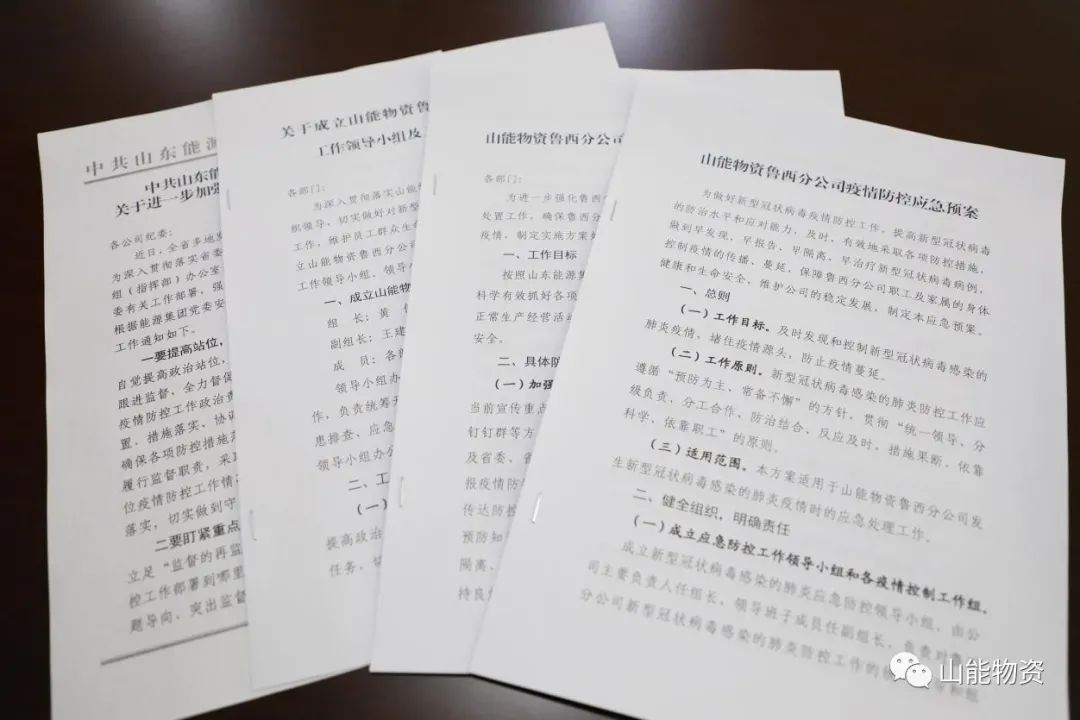 中共山东能源
中共山东能
关于进一步加强
各公司纪委:
近日,全省多地发
为深入贯彻落实省委
组(指挥部)办公室
委有关工作部署,强
根据能源集团党委安
工作通知如下。
一要提高站位,
自觉提高政治站位,
跟进监督,全力督促
疫情防控工作政治责
置、措施落实、协调
确保各项防控措施落
履行监督职责,采取
位疫情防控工作情
落实,切实做到守
二要盯紧重点
立足“监督的再监
控工作部署到哪里
题导向,突出监督
关于成立山能物资鲁
工作领导小组及
各部门:
为深入贯彻落实山能
织领导,切实做好对新型
工作,维护员工群众生命
立山能物资鲁西分公司
工作领导小组,领导小
一、成立山能物
组 长:黄
副组长:王建
成 员:各部
领导小组办
作,负责统筹开
患排查、应急
领导小组办公
二、工
(一)
提高政治
任务、切
山能物资鲁西分公司
各部门:
为进一步强化鲁西分
处置工作,确保鲁西分
疫情,制定实施方案如
一、工作目标
按照山东能源集
科学有效抓好各项
正常生产经营活动
安全。
二、具体防
(一)加强
当前宣传重点
钉钉群等方
及省委、省
报疫情防
传达防控
预防知
隔离、
持良
山能物资鲁西分公司疫情防控应急预案
为做好新型冠状病毒疫情防控工作,提高新型冠状病毒
的防治水平和应对能力,及时、有效地采取各项防控措施,
做到早发现、早报告、早隔离、早治疗新型冠状病毒病例,
控制疫情的传播、蔓延,保障鲁西分公司职工及家属的身体
健康和生命安全、维护公司的稳定发展,制定本应急预案。
一、总则
(一)工作目标。及时发现和控制新型冠状病毒感染的
肺炎疫情,堵住疫情源头、防止疫情蔓延。
(二)工作原则。新型冠状病毒感染的肺炎防控工作应
遵循“预防为主、常备不懈”的方针,贯彻“统一领导、分
级负责,分工合作、防治结合、反应及时,措施果断、依靠
科学、依靠职工”的原则。
(三)适用范围。本方案适用于山能物资鲁西分公司发
生新型冠状病毒感染的肺炎疫情时的应急处理工作。
二、健全组织,明确责任
(一)成立应急防控工作领导小组和各疫情控制工作组。
成立新型冠状病毒感染的肺炎应急防控领导小组,由公
司主要负责人任组长,领导班子成员任副组长,负责对鲁
分公司新型冠状病毒感染的肺炎防控工作的
山能物资